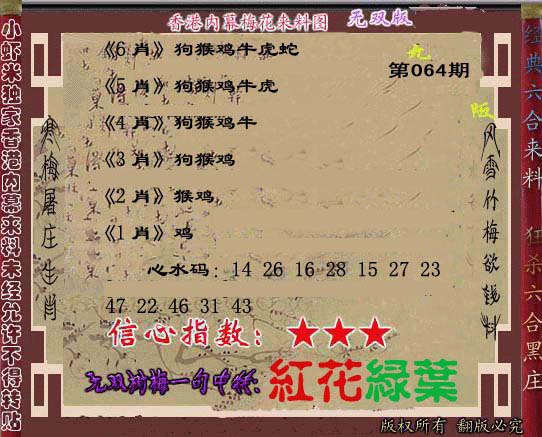 香港内幕梅花来料图 无双版
《6 肖》狗猴鸡牛虎蛇
第064期
《5 肖》狗猴鸡牛虎
《4 肖》狗猴鸡牛
《3 肖》狗猴鸡
《2 肖》猴鸡
《1 肖》鸡
心水码：14 26 16 28 15 27 23
47 22 46 31 43
信心指数：★★★
无双浏梅一句中特：紅花緑葉
小虾米独家香港内幕来料未经允许不得转贴
寒梅屠庄生肖
风雪竹梅欲钱料
经典六合来料
狂杀六合黑庄
版权所有 翻版必究